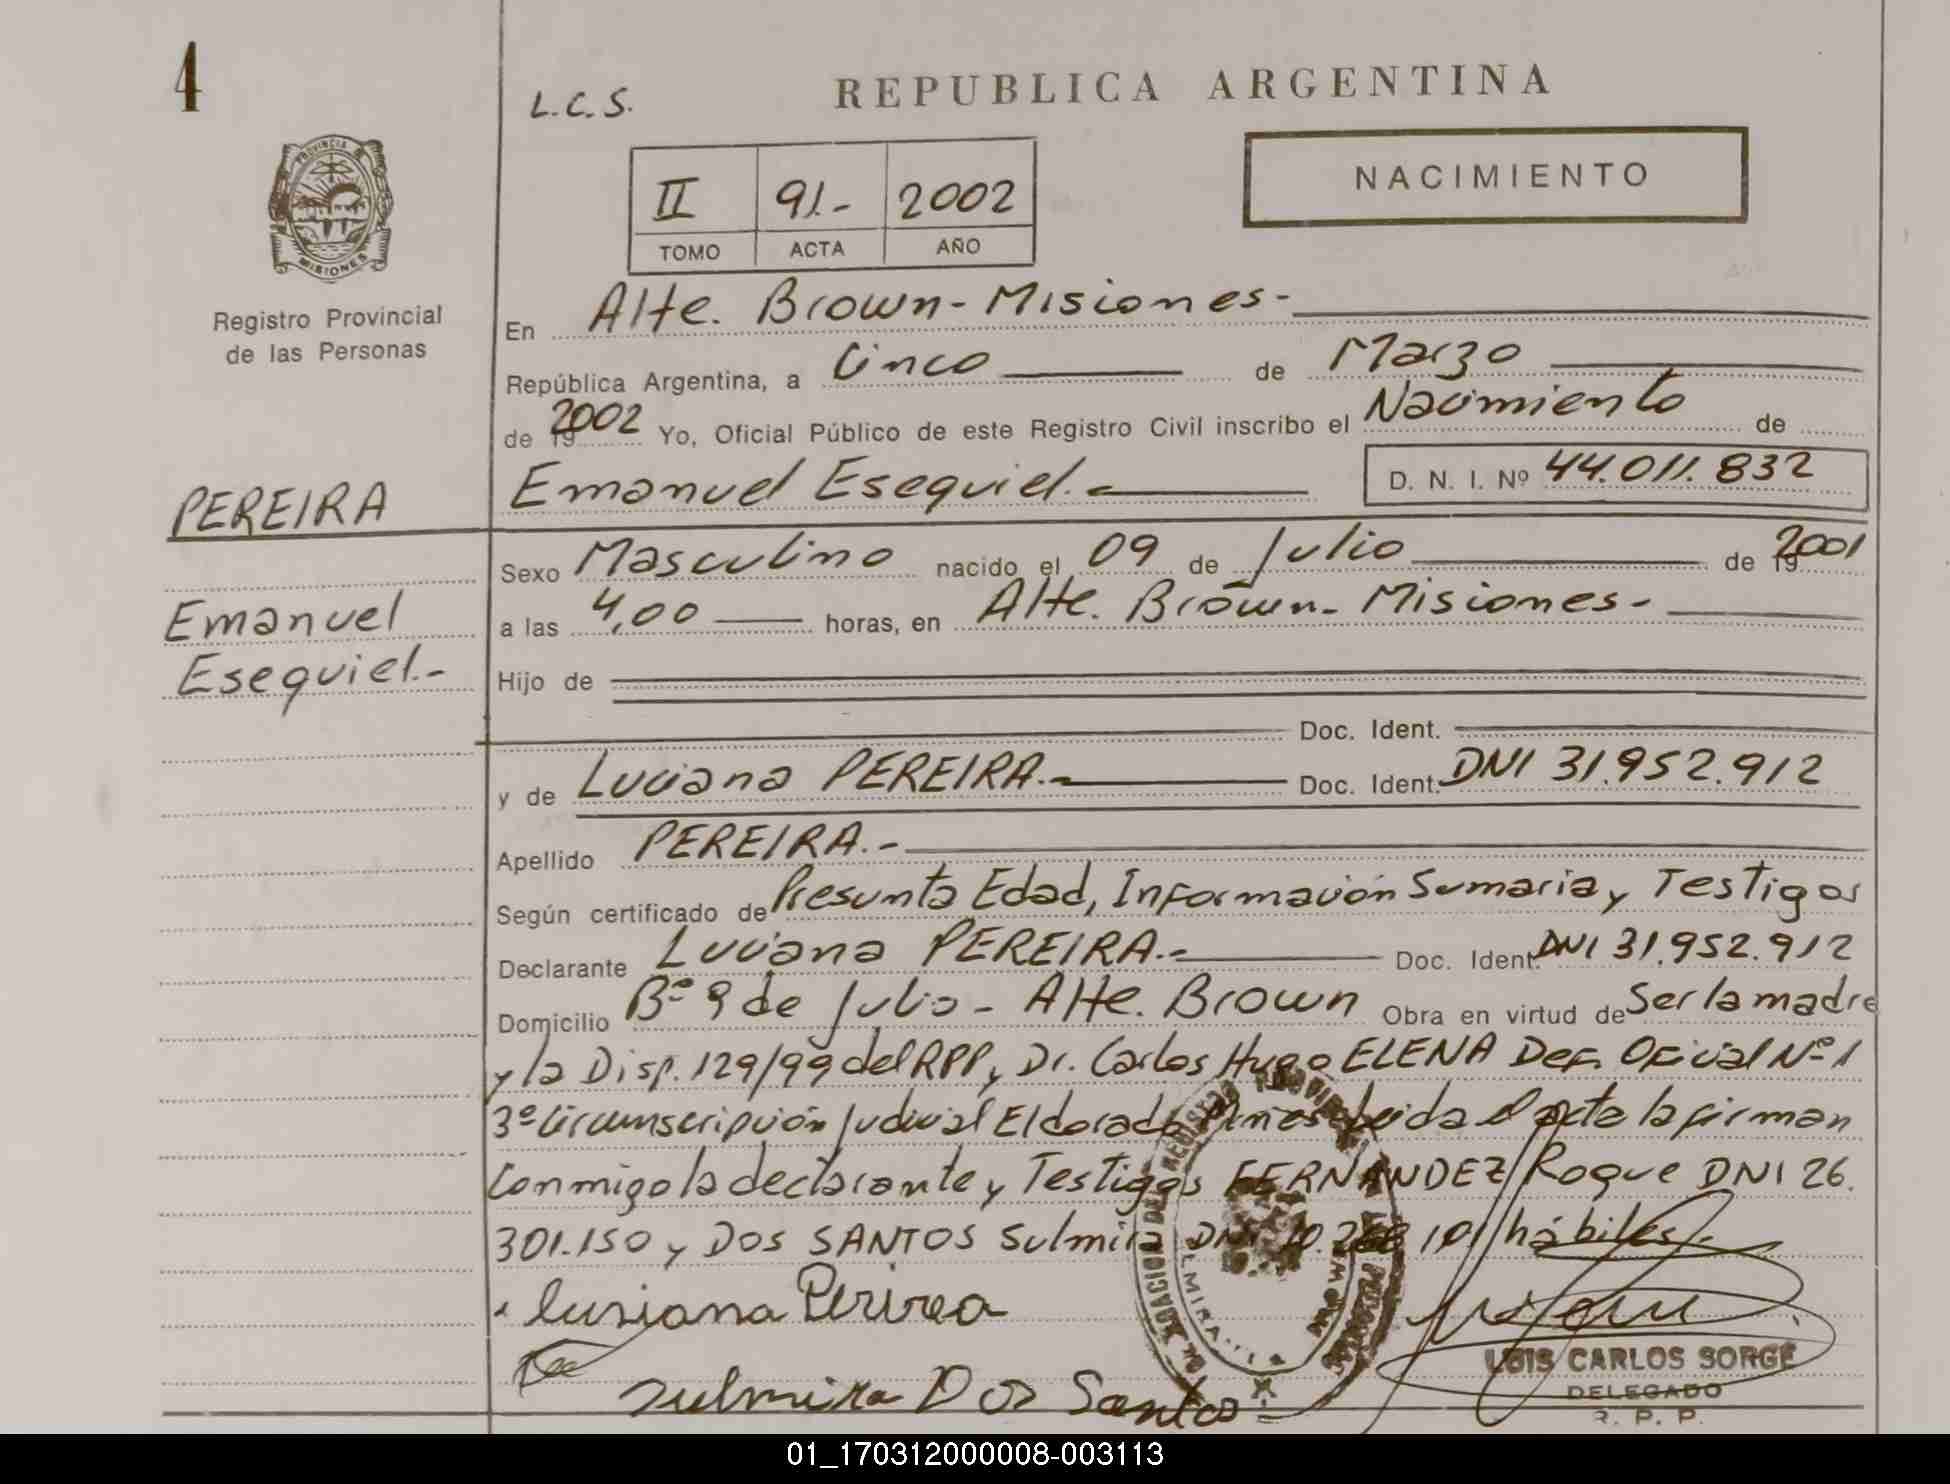 4
L.C.S.
REPUBLICA ARGENTINA
PROVINCIA DE
MISIONES
Registro Provincial
de las Personas
II 91.- 2002
TOMO ACTA AÑO
NACIMIENTO
En Alte. Brown - Misiones -
República Argentina, a Cinco de Marzo
de 19 2002 Yo, Oficial Público de este Registro Civil inscribo el Nacimiento de
Emanuel Esequiel.- D. N. I. Nº 44.011.832
PEREIRA
Sexo Masculino nacido el 09 de Julio de 19 2001
Emanuel
a las 4,00 horas, en Alte. Brown - Misiones -
Esequiel.-
Hijo de
Doc. Ident.
y de Luciana PEREIRA.- Doc. Ident. DNI 31.952.912
Apellido PEREIRA.-
Según certificado de Presunta Edad, Información Sumaria y Testigos
Declarante Luciana PEREIRA.- Doc. Ident. DNI 31.952.912
Domicilio Bº 9 de Julio - Alte. Brown Obra en virtud de Ser la madre
y la Disp. 129/99 del RPP, Dr. Carlos Hugo ELENA Def. Oficial Nº 1
3º Circunscripción Judicial Eldorado Mnes Leida el acta la firman
Conmigo la declarante y Testigos FERNANDEZ Roque DNI 26.
301.150 y DOS SANTOS Sulmira DNI hábiles.-
Lusiana Perirea
Sulmira Dos Santos
LUIS CARLOS SORGE
DELEGADO
R. P. P.
01_170312000008-003113